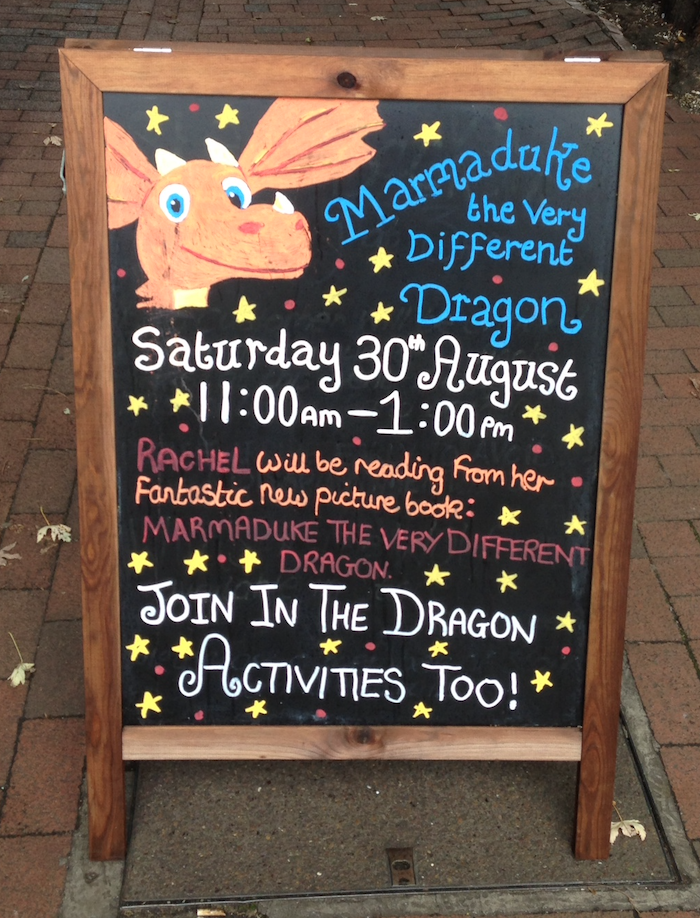 Marmaduke
the Very
Different
Dragon
Saturday 30th August
11:00am – 1:00pm
RACHEL will be reading from her
Fantastic new picture book:
MARMADUKE THE VERY DIFFERENT
DRAGON.
JOIN IN THE DRAGON
ACTIVITIES TOO!